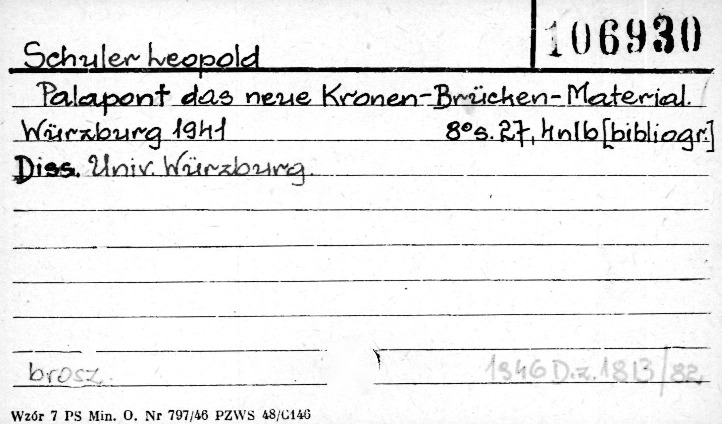 106930
Schuler Leopold
Palapont das neue Kronen-Brücken-Material.
Würzburg 1941 8° s. 27, 4nlb [bibliogr.]
Diss. Univ. Würzburg.
brosz. 1946 D.z. 1813/82.
Wzór 7 PS Min. O. Nr 797/46 PZWS 48/C146